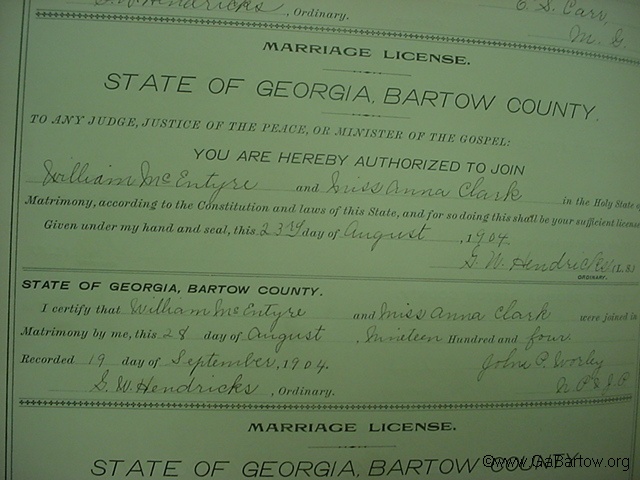 G. W. Hendricks, Ordinary. C. S. Carr
M. G.
MARRIAGE LICENSE.
STATE OF GEORGIA, BARTOW COUNTY.
TO ANY JUDGE, JUSTICE OF THE PEACE, OR MINISTER OF THE GOSPEL:
YOU ARE HEREBY AUTHORIZED TO JOIN
William McEntyre and Miss Anna Clark in the Holy State of
Matrimony, according to the Constitution and laws of this State, and for so doing this shall be your sufficient license
Given under my hand and seal, this 23rd day of August, 1904
G. W. Hendricks (L.S.)
ORDINARY.
STATE OF GEORGIA, BARTOW COUNTY.
I certify that William McEntyre and Miss Anna Clark were joined in
Matrimony by me, this 28 day of August, Nineteen Hundred and four.
Recorded 19 day of September, 1904. John P. Worley
G. W. Hendricks, Ordinary. N. P. & J. P.
MARRIAGE LICENSE.
STATE OF GEORGIA, BARTOW COUNTY
©www.GaBartow.org